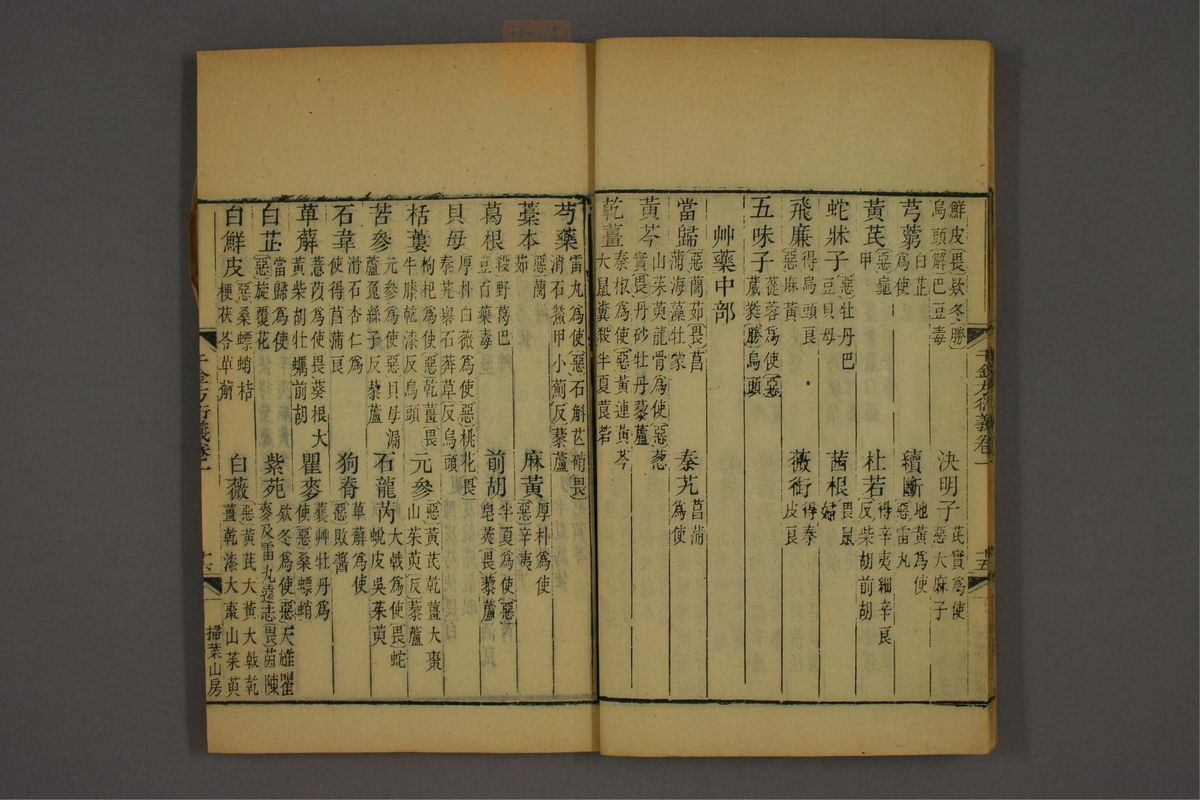 鮮皮畏欸冬勝
烏頭解巴豆毒
決明子蓍實爲使
惡大麻子
芎藭白芷
爲使
續斷地黃爲使
惡雷丸
黃芪惡龜
甲
杜若得辛夷細辛良
反柴胡前胡
蛇牀子惡牡丹巴
豆貝母
茜根畏鼠
婦
飛廉得烏頭良
惡麻黃
薇銜得秦
皮良
五味子蓯蓉爲使惡
葳蕤勝烏頭
艸藥中部
當歸惡䕡茹畏菖
蒲海藻牡蒙
秦艽菖蒲
爲使
黃芩山茱萸龍骨爲使惡葱
實畏丹砂牡丹藜蘆
乾薑秦椒爲使惡黃連黃芩
天鼠糞殺半夏莨菪
芍藥雷丸爲使惡石斛芒硝畏
消石鱉甲小薊反藜蘆
藁本惡䕡
茹
麻黃厚朴爲使
惡辛夷
葛根殺野葛巴
豆百藥毒
前胡半夏爲使惡
皂莢畏藜蘆
貝母厚朴白薇爲使惡桃花畏
秦艽礜石莽草反烏頭
栝蔞枸杞爲使惡乾薑畏
牛膝乾漆反烏頭
元參惡黃芪乾薑大棗
山茱萸反藜蘆
苦參元參爲使惡貝母漏
蘆菟絲子反藜蘆
石龍芮大戟爲使畏蛇
蛻皮吳茱萸
石韋滑石杏仁爲
使得菖蒲良
狗脊萆薢爲使
惡敗醬
萆薢薏苡爲使畏葵根大
黃柴胡牡蠣前胡
瞿麥蘘艸牡丹爲
使惡桑螵蛸
白芷當歸爲使
惡旋覆花
紫苑欸冬爲使惡天雄瞿
麥及雷丸遠志畏茵陳
白鮮皮惡桑螵蛸桔
梗茯苓萆薢
白薇惡黃芪大黃大戟乾
薑乾漆大棗山茱萸
千金方衍義卷一
十五
千金方衍義卷一
十六
掃葉山房